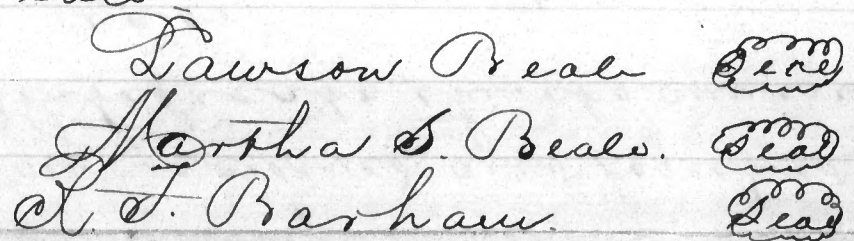 Dawson Beale Seal
Martha S. Beale. Seal
R. T. Barham. Seal